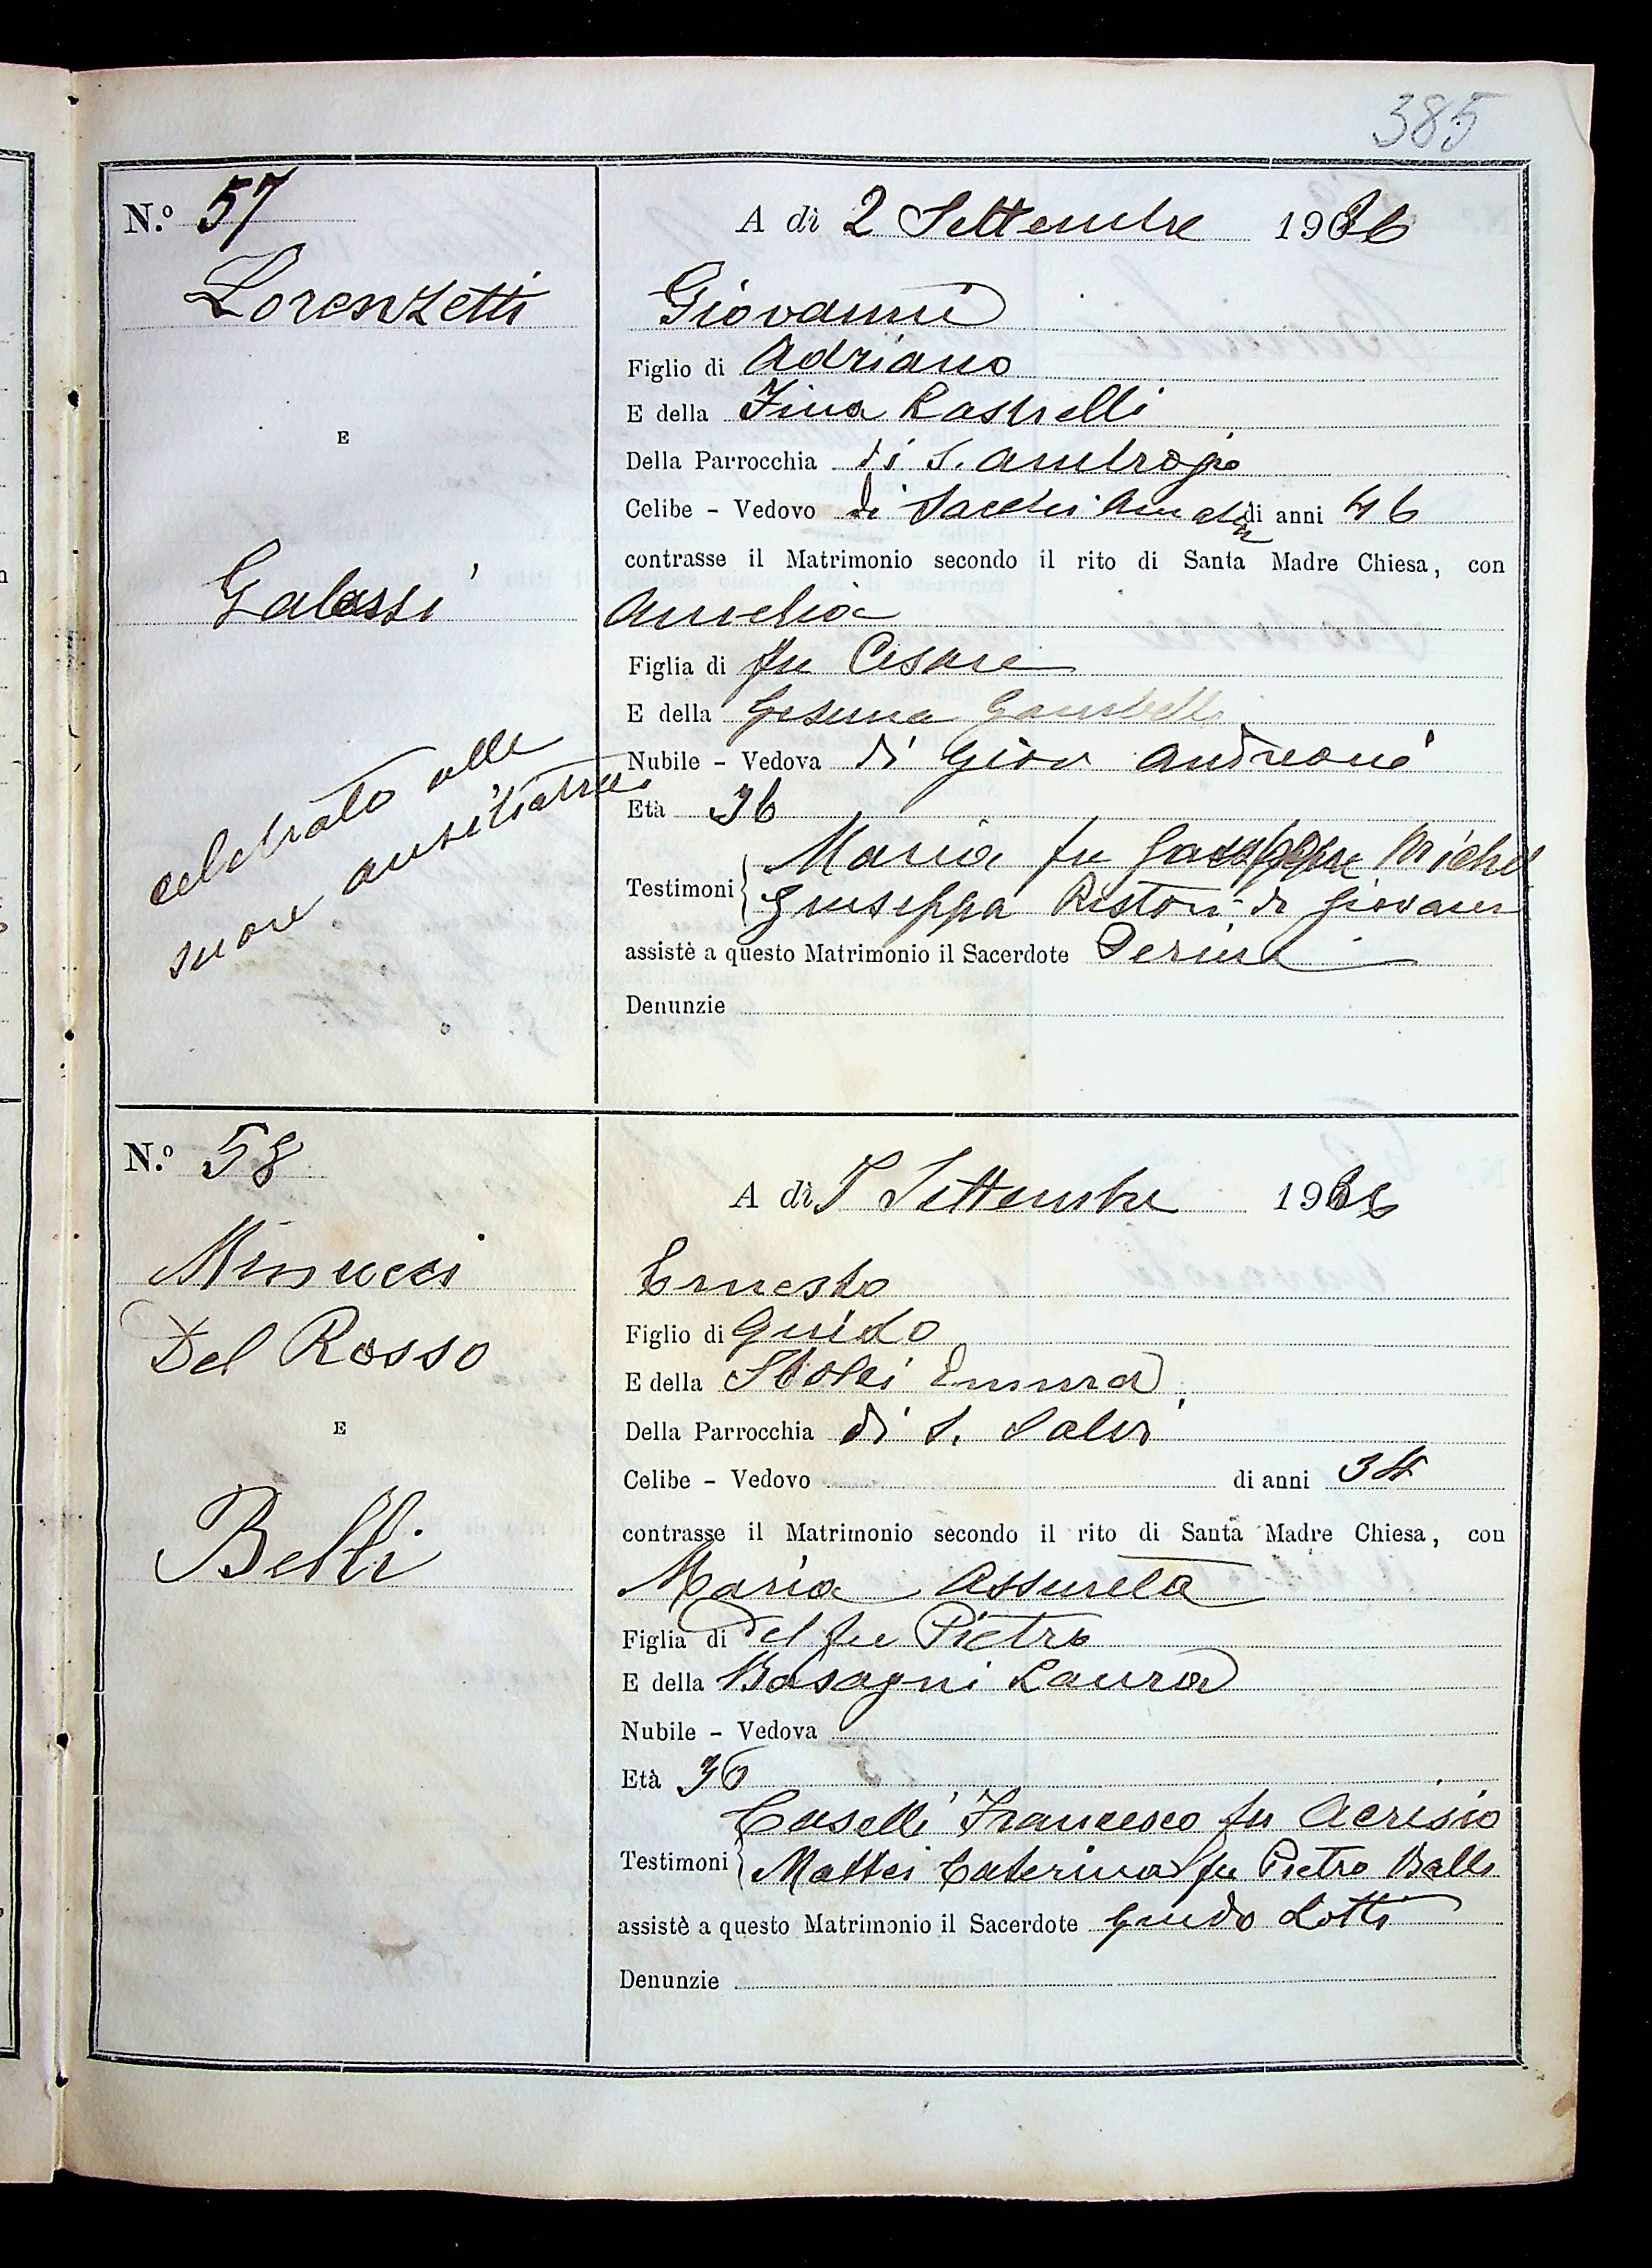 385
N.o 57
A dì 2 Settembre 1936
Lorenzetti
Giovanni
Figlio di Adriano
E della Zina Rastrelli
E
Della Parrocchia di S. Ambrogio
Celibe - Vedovo di Sacchi di anni 46
contrasse il Matrimonio secondo il rito di Santa Madre Chiesa, con
Galassi
Amelia
Figlia di fu Cesare
E della Gesuina Gambelli
Nubile - Vedova di Giov Andreoni
celebrato alle
suore ausiliatrici
Età 36
Testimoni { Maria fu Michel
Giuseppa Ristori di Giovanni
assistè a questo Matrimonio il Sacerdote
Denunzie
N.o 58
A dì 5 Settembre 1936
Minucci
Del Rosso
Ernesto
Figlio di Guido
E della Emma
E
Della Parrocchia di S. Salvi
Celibe - Vedovo di anni 34
contrasse il Matrimonio secondo il rito di Santa Madre Chiesa, con
Belli
Maria Assunta
Figlia di del fu Pietro
E della Basagni Laura
Nubile - Vedova
Età 36
Testimoni { Caselli Francesco fu Acrisio
Mattei Caterina fu Pietro Balli
assistè a questo Matrimonio il Sacerdote Guido Lotti
Denunzie